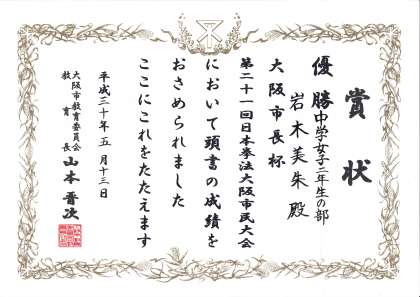 賞状
優勝 中学女子二年生の部
岩木美朱殿
大阪市長杯
第二十一回日本拳法大阪市民大会
において頭書の成績を
おさめられました
ここにこれをたたえます
平成三十年五月十三日
大阪市教育委員会
教育長 山本晋次